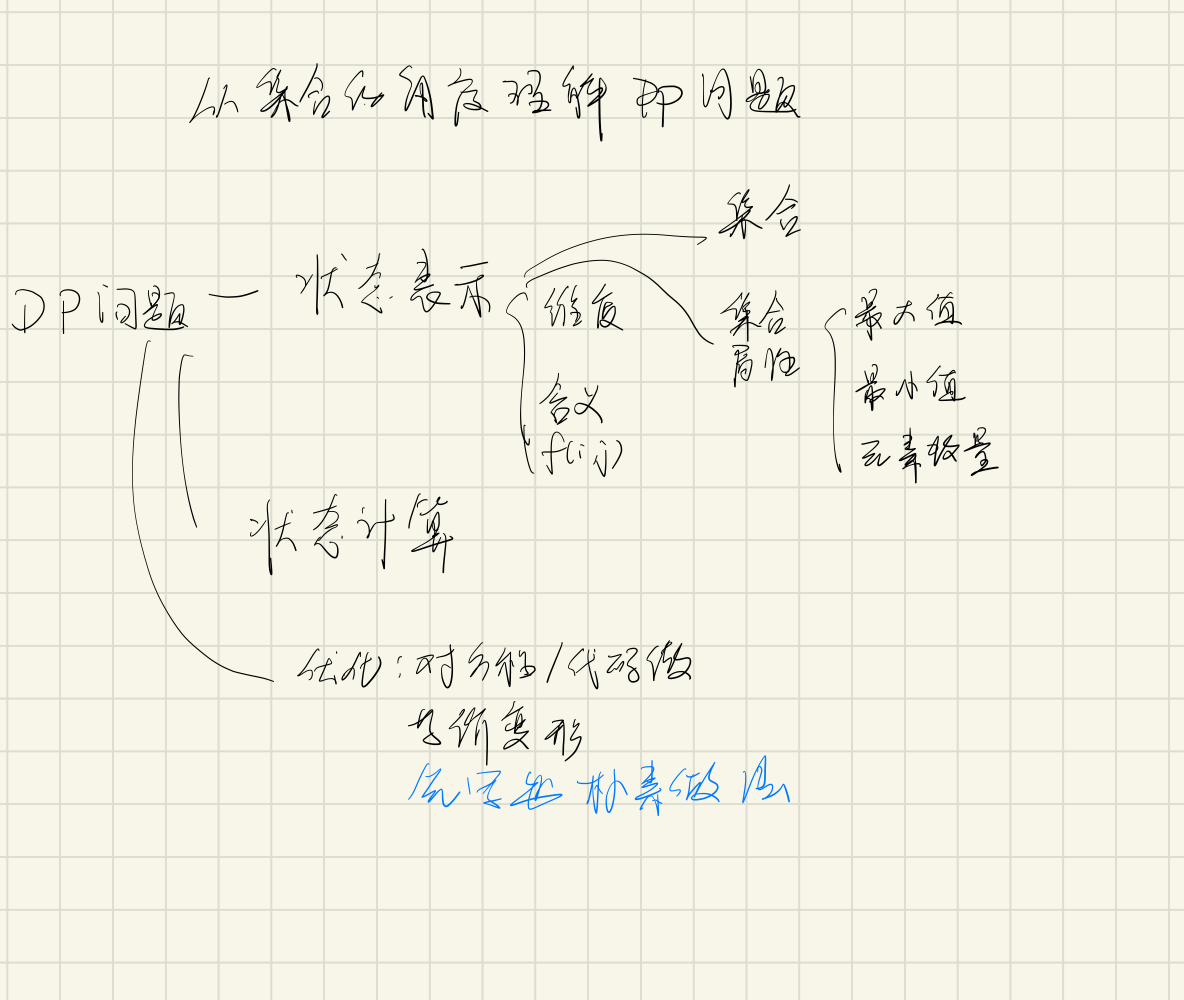 从集合的角度理解DP问题
集合
DP问题
状态表示
维度
含义
f(i,j)
集合
属性
最大值
最小值
元素数量
状态计算
优化：对方程/代码做
等价变形
先写出朴素做法